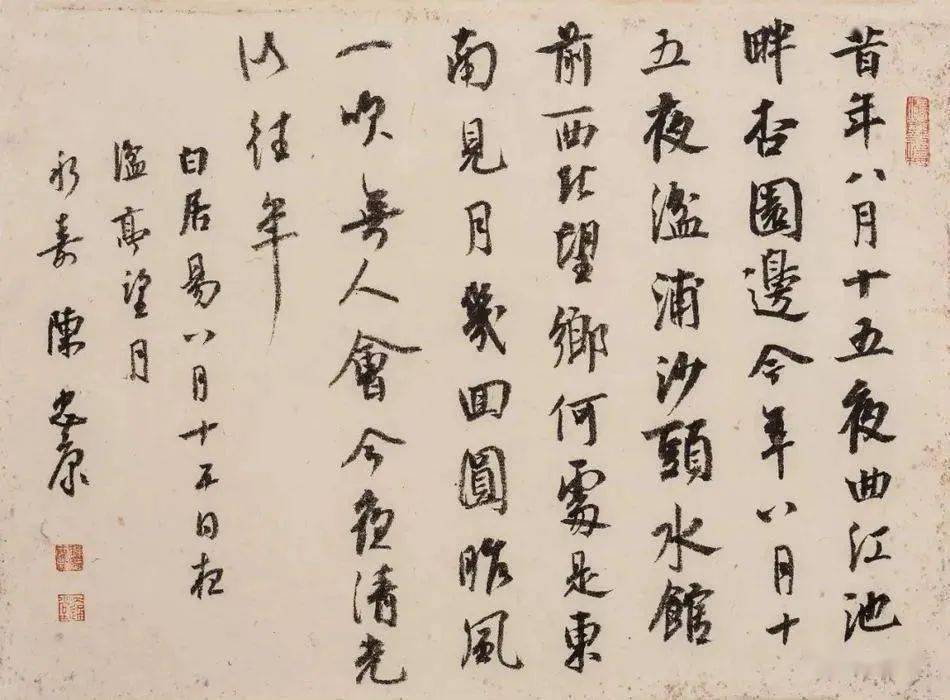 昔年八月十五夜曲江池
畔杏園邊今年八月十
五夜湓浦沙頭水館
前西北望鄉何處是東
南見月幾回圓昨風
一吹無人會今夜清光
似往年
白居易八月十五日夜
湓亭望月
永壽陳忠康